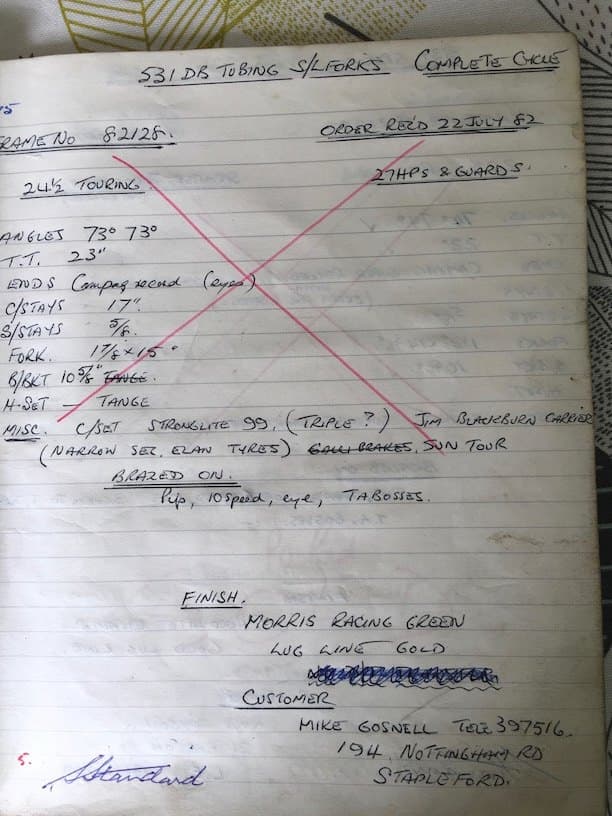 531 DB TUBING S/L FORKS COMPLETE CYCLE
RAME No 82128.
ORDER REC'D 22 JULY 82
24½ TOURING.
27 HPS & GUARDS.
ANGLES 73° 73°
T.T. 23"
ENDS Campag record (eyes)
C/STAYS 17".
S/STAYS 5/8.
FORK. 1 7/8 x 15°
B/BKT 10 5/8" TANGE.
H.SET — TANGE
MISC. C/SET STRONGLITE 99, (TRIPLE ?) JIM BLACKBURN CARRIER
(NARROW SEC, ELAN TYRES) GALLI BRAKES, SUN TOUR
BRAZED ON.
Pip, 10 speed, eye, TA BOSSES.
FINISH.
MORRIS RACING GREEN
LUG LINE GOLD
CUSTOMER
MIKE GOSNELL TELE 397516.
194, NOTTINGHAM RD
STAPLEFORD.
5.
Standard